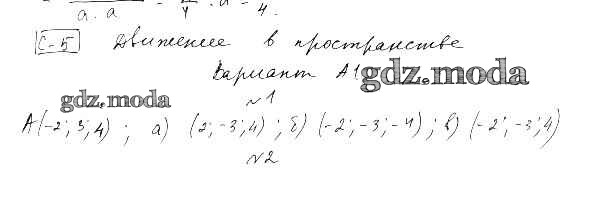 a · a
4
С-5 Движение в пространстве
Вариант А1
gdz.moda
gdz.moda
№1
А(-2; 3; 4) ; а) (2; -3; 4) ; б) (-2; -3; -4) ; в) (-2; -3; 4)
№2